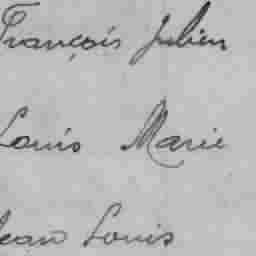 François Julien
Louis Marie
Jean Louis